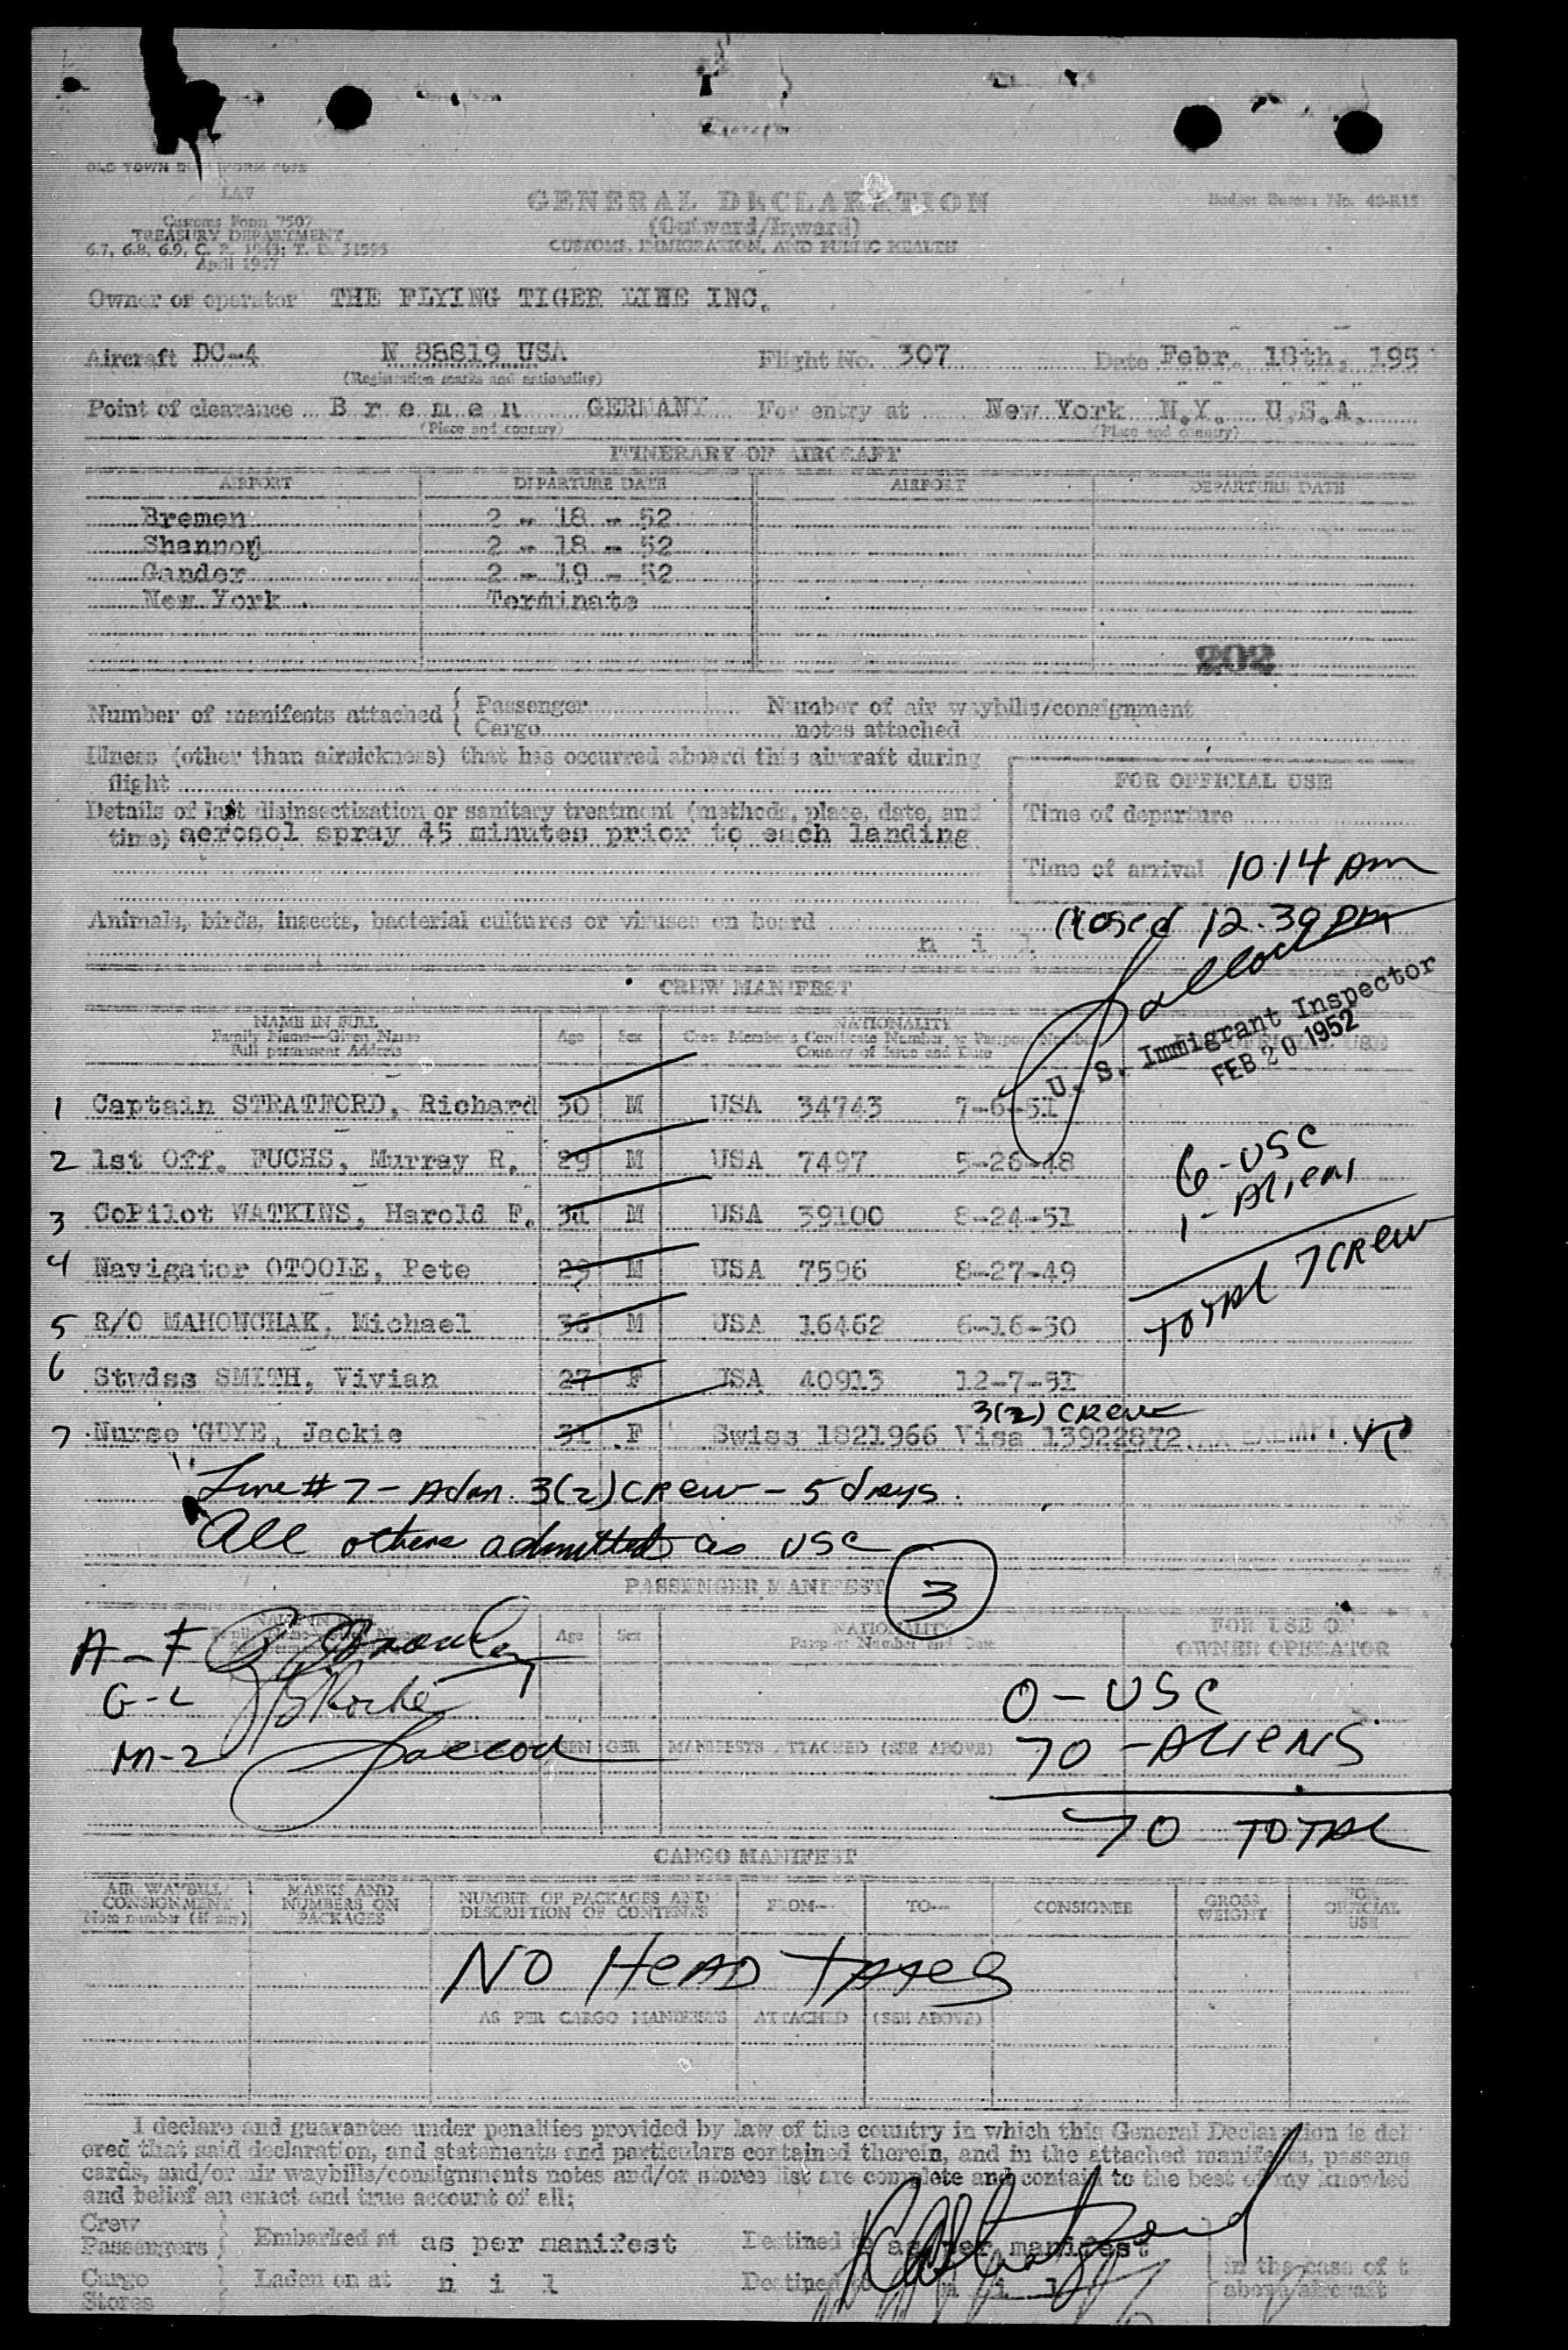 LAV
Customs Form 7507
TREASURY DEPARTMENT
6.7, 6.8, 6.9, C. R. 1943; T. D. 51595
April 1947
GENERAL DECLARATION
(Outward/Inward)
CUSTOMS, IMMIGRATION, AND PUBLIC HEALTH
Budget Bureau No. 43-R15
Owner or operator THE FLYING TIGER LINE INC.
Aircraft DC-4 N 88819 USA Flight No. 307 Date Febr. 18th, 195
(Registration marks and nationality)
Point of clearance B r e m e n GERMANY For entry at New York N.Y. U.S.A.
(Place and country) (Place and country)
ITINERARY OF AIRCRAFT
AIRPORT DEPARTURE DATE AIRPORT DEPARTURE DATE
Bremen 2 - 18 - 52
Shannon 2 - 18 - 52
Gander 2 - 19 - 52
New York. Terminate
202
Number of manifests attached { Passenger Number of air waybills/consignment
Cargo notes attached
Illness (other than airsickness) that has occurred aboard this aircraft during
flight
FOR OFFICIAL USE
Details of last disinsectization or sanitary treatment (methods, place, date, and
time) aerosol spray 45 minutes prior to each landing
Time of departure
Time of arrival 10.14 pm
Closed 12.39 pm
Animals, birds, insects, bacterial cultures or viruses on board
n i l
U. S. Immigrant Inspector
FEB 20 1952
CREW MANIFEST
NAME IN FULL
Family Name—Given Name
Full permanent Address
Age Sex
NATIONALITY
Crew Member's Certificate Number or Passport Number
Country of Issue and Date
1 Captain STRATFORD, Richard 30 M USA 34743 7-6-51
2 1st Off. FUCHS, Murray R. 29 M USA 7497 5-26-48
3 CoPilot WATKINS, Harold F. M USA 39100 8-24-51
4 Navigator OTOOLE, Pete 29 M USA 7596 8-27-49
5 R/O MAHONCHAK, Michael 36 M USA 16462 6-16-50
6 Stwdss SMITH, Vivian 27 F USA 40913 12-7-51
3(2) CREW
7 Nurse GUYE, Jackie 31 F Swiss 1821966 Visa 13922872 TAX EXEMPT
6-USC
1-Aliens
TOTAL 7 CREW
Line # 7 - Adm. 3(2) CREW - 5 days.
All others admitted as USC
PASSENGER MANIFEST 3
Age Sex
NATIONALITY
Passport Number and Date
FOR USE OF
OWNER OPERATOR
A-F
G-L
M-Z
MANIFESTS ATTACHED (SEE ABOVE)
0 - USC
70 - ALIENS
70 TOTAL
CARGO MANIFEST
AIR WAYBILL/
CONSIGNMENT
Note number (if any)
MARKS AND
NUMBERS ON
PACKAGES
NUMBER OF PACKAGES AND
DESCRIPTION OF CONTENTS
FROM—
TO—
CONSIGNEE
GROSS
WEIGHT
FOR
OFFICIAL
USE
NO HEAD TAXES
AS PER CARGO MANIFESTS ATTACHED (SEE ABOVE)
I declare and guarantee under penalties provided by law of the country in which this General Declaration is del
ered that said declaration, and statements and particulars contained therein, and in the attached manifests, passeng
cards, and/or air waybills/consignments notes and/or stores list are complete and contain to the best of my knowled
and belief an exact and true account of all;
Crew
Passengers } Embarked at as per manifest Destined to as per manifest
Cargo
Stores Laden on at n i l Destined to n i l
in the case of t
above aircraft